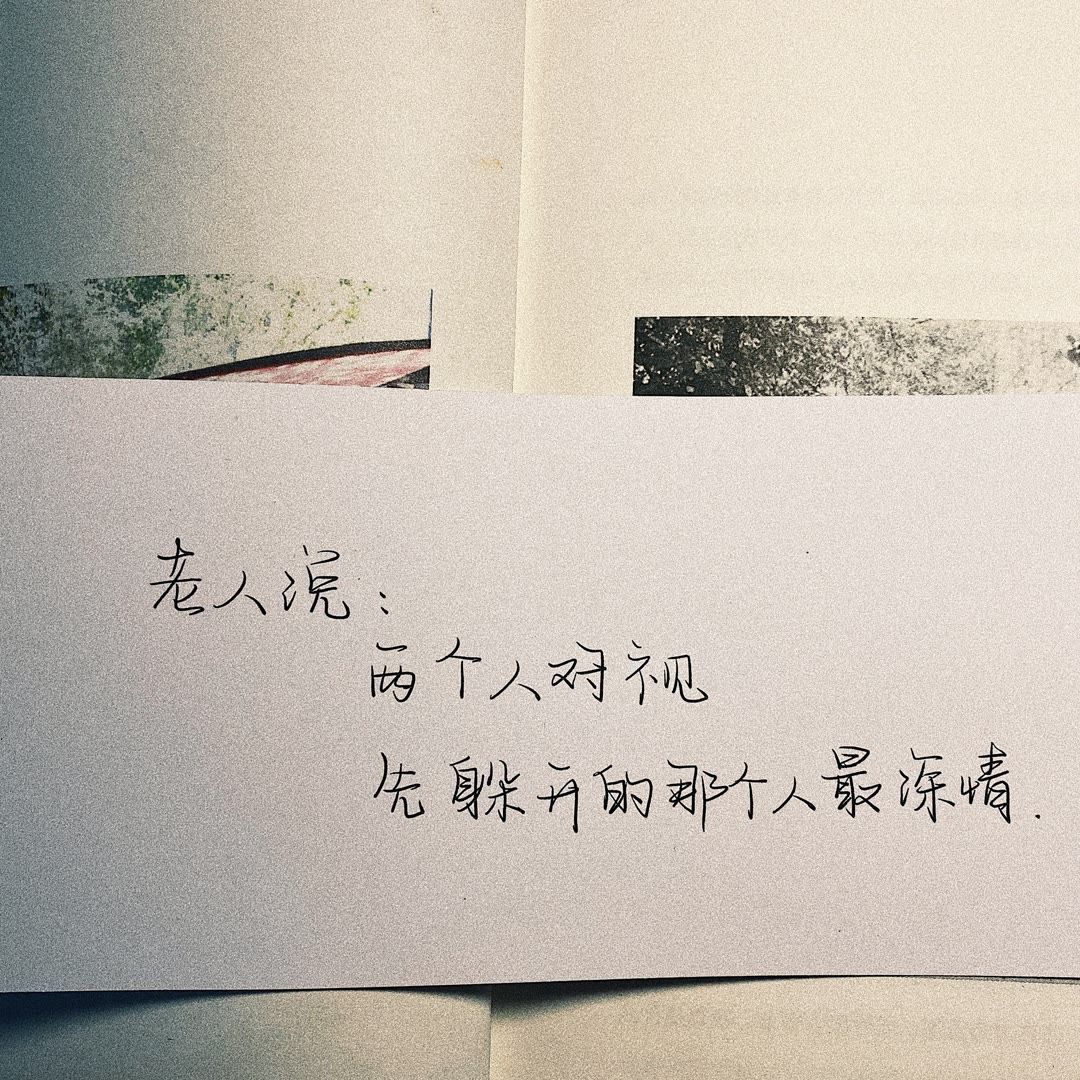 老人说：
两个人对视
先躲开的那个人最深情.